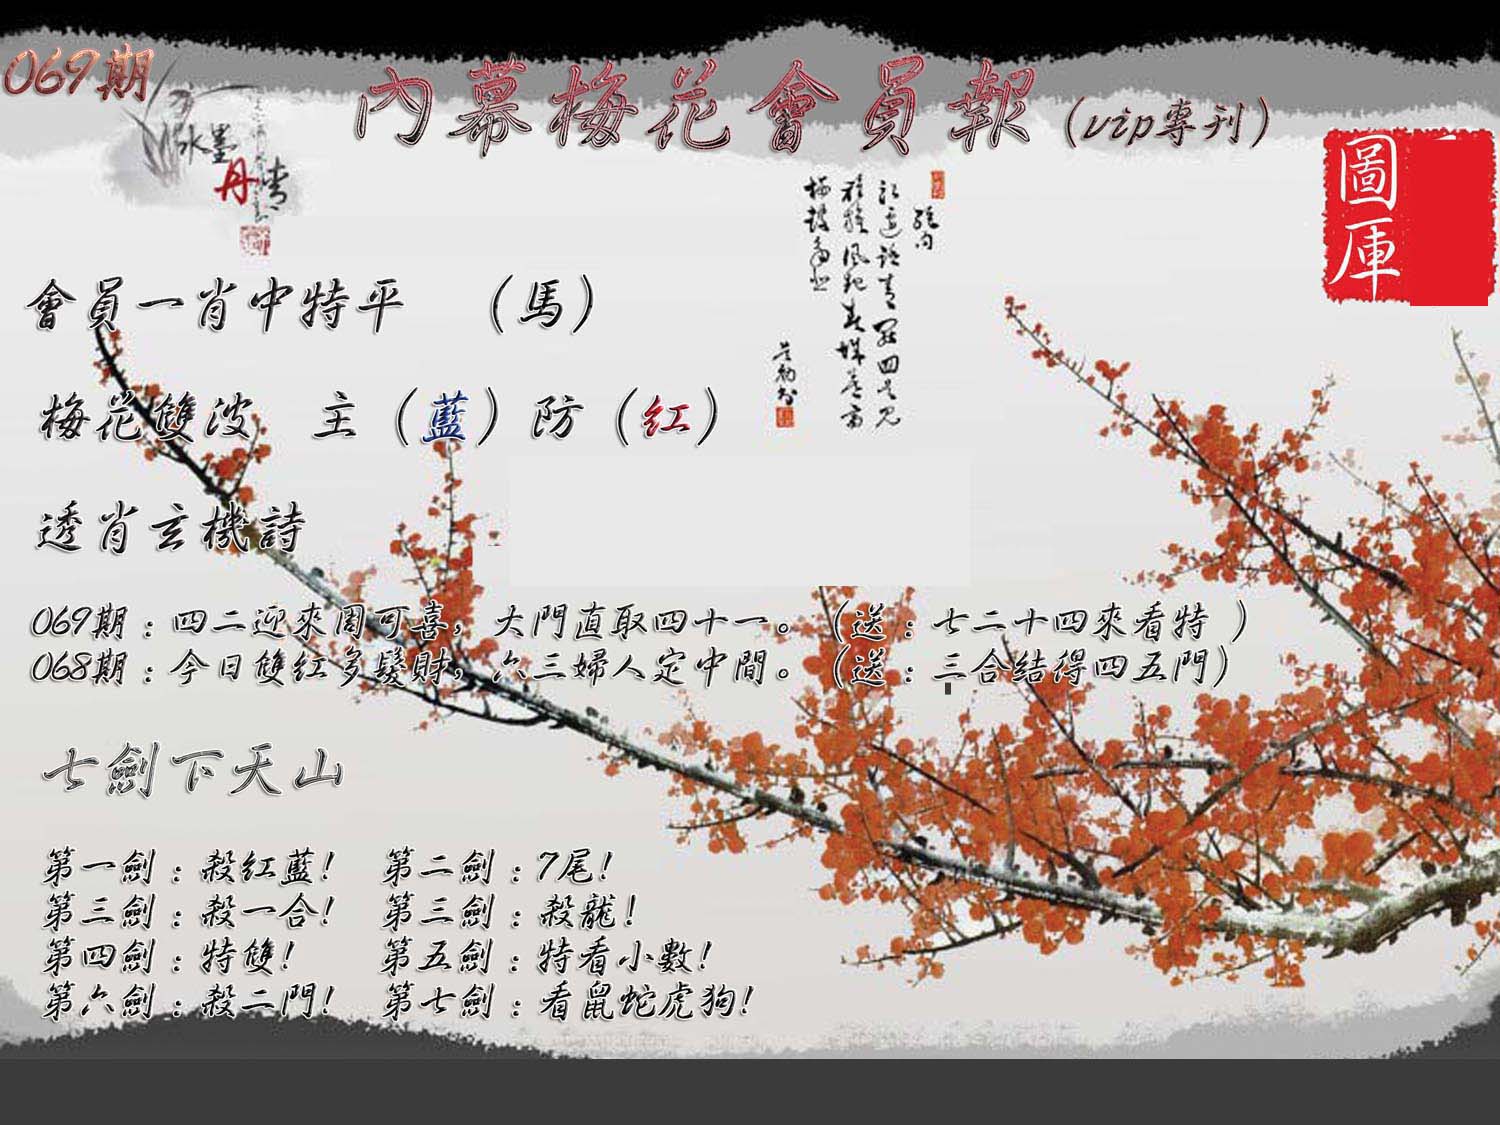 069期
內幕梅花會員報(vip專刊)
水墨
丹青
圖
庫
會員一肖中特平 (馬)
梅花雙波 主(藍)防(紅)
透肖玄機詩
069期:四二迎來周可喜，大門直取四十一。(送:七二十四來看特 )
068期:今日雙紅多髮財，六三婦人定中間。(送:三合结得四五門)
七劍下天山
第一劍:殺紅藍! 第二劍:7尾!
第三劍:殺一合! 第三劍:殺龍!
第四劍:特雙! 第五劍:特看小數!
第六劍:殺二門! 第七劍:看鼠蛇虎狗!